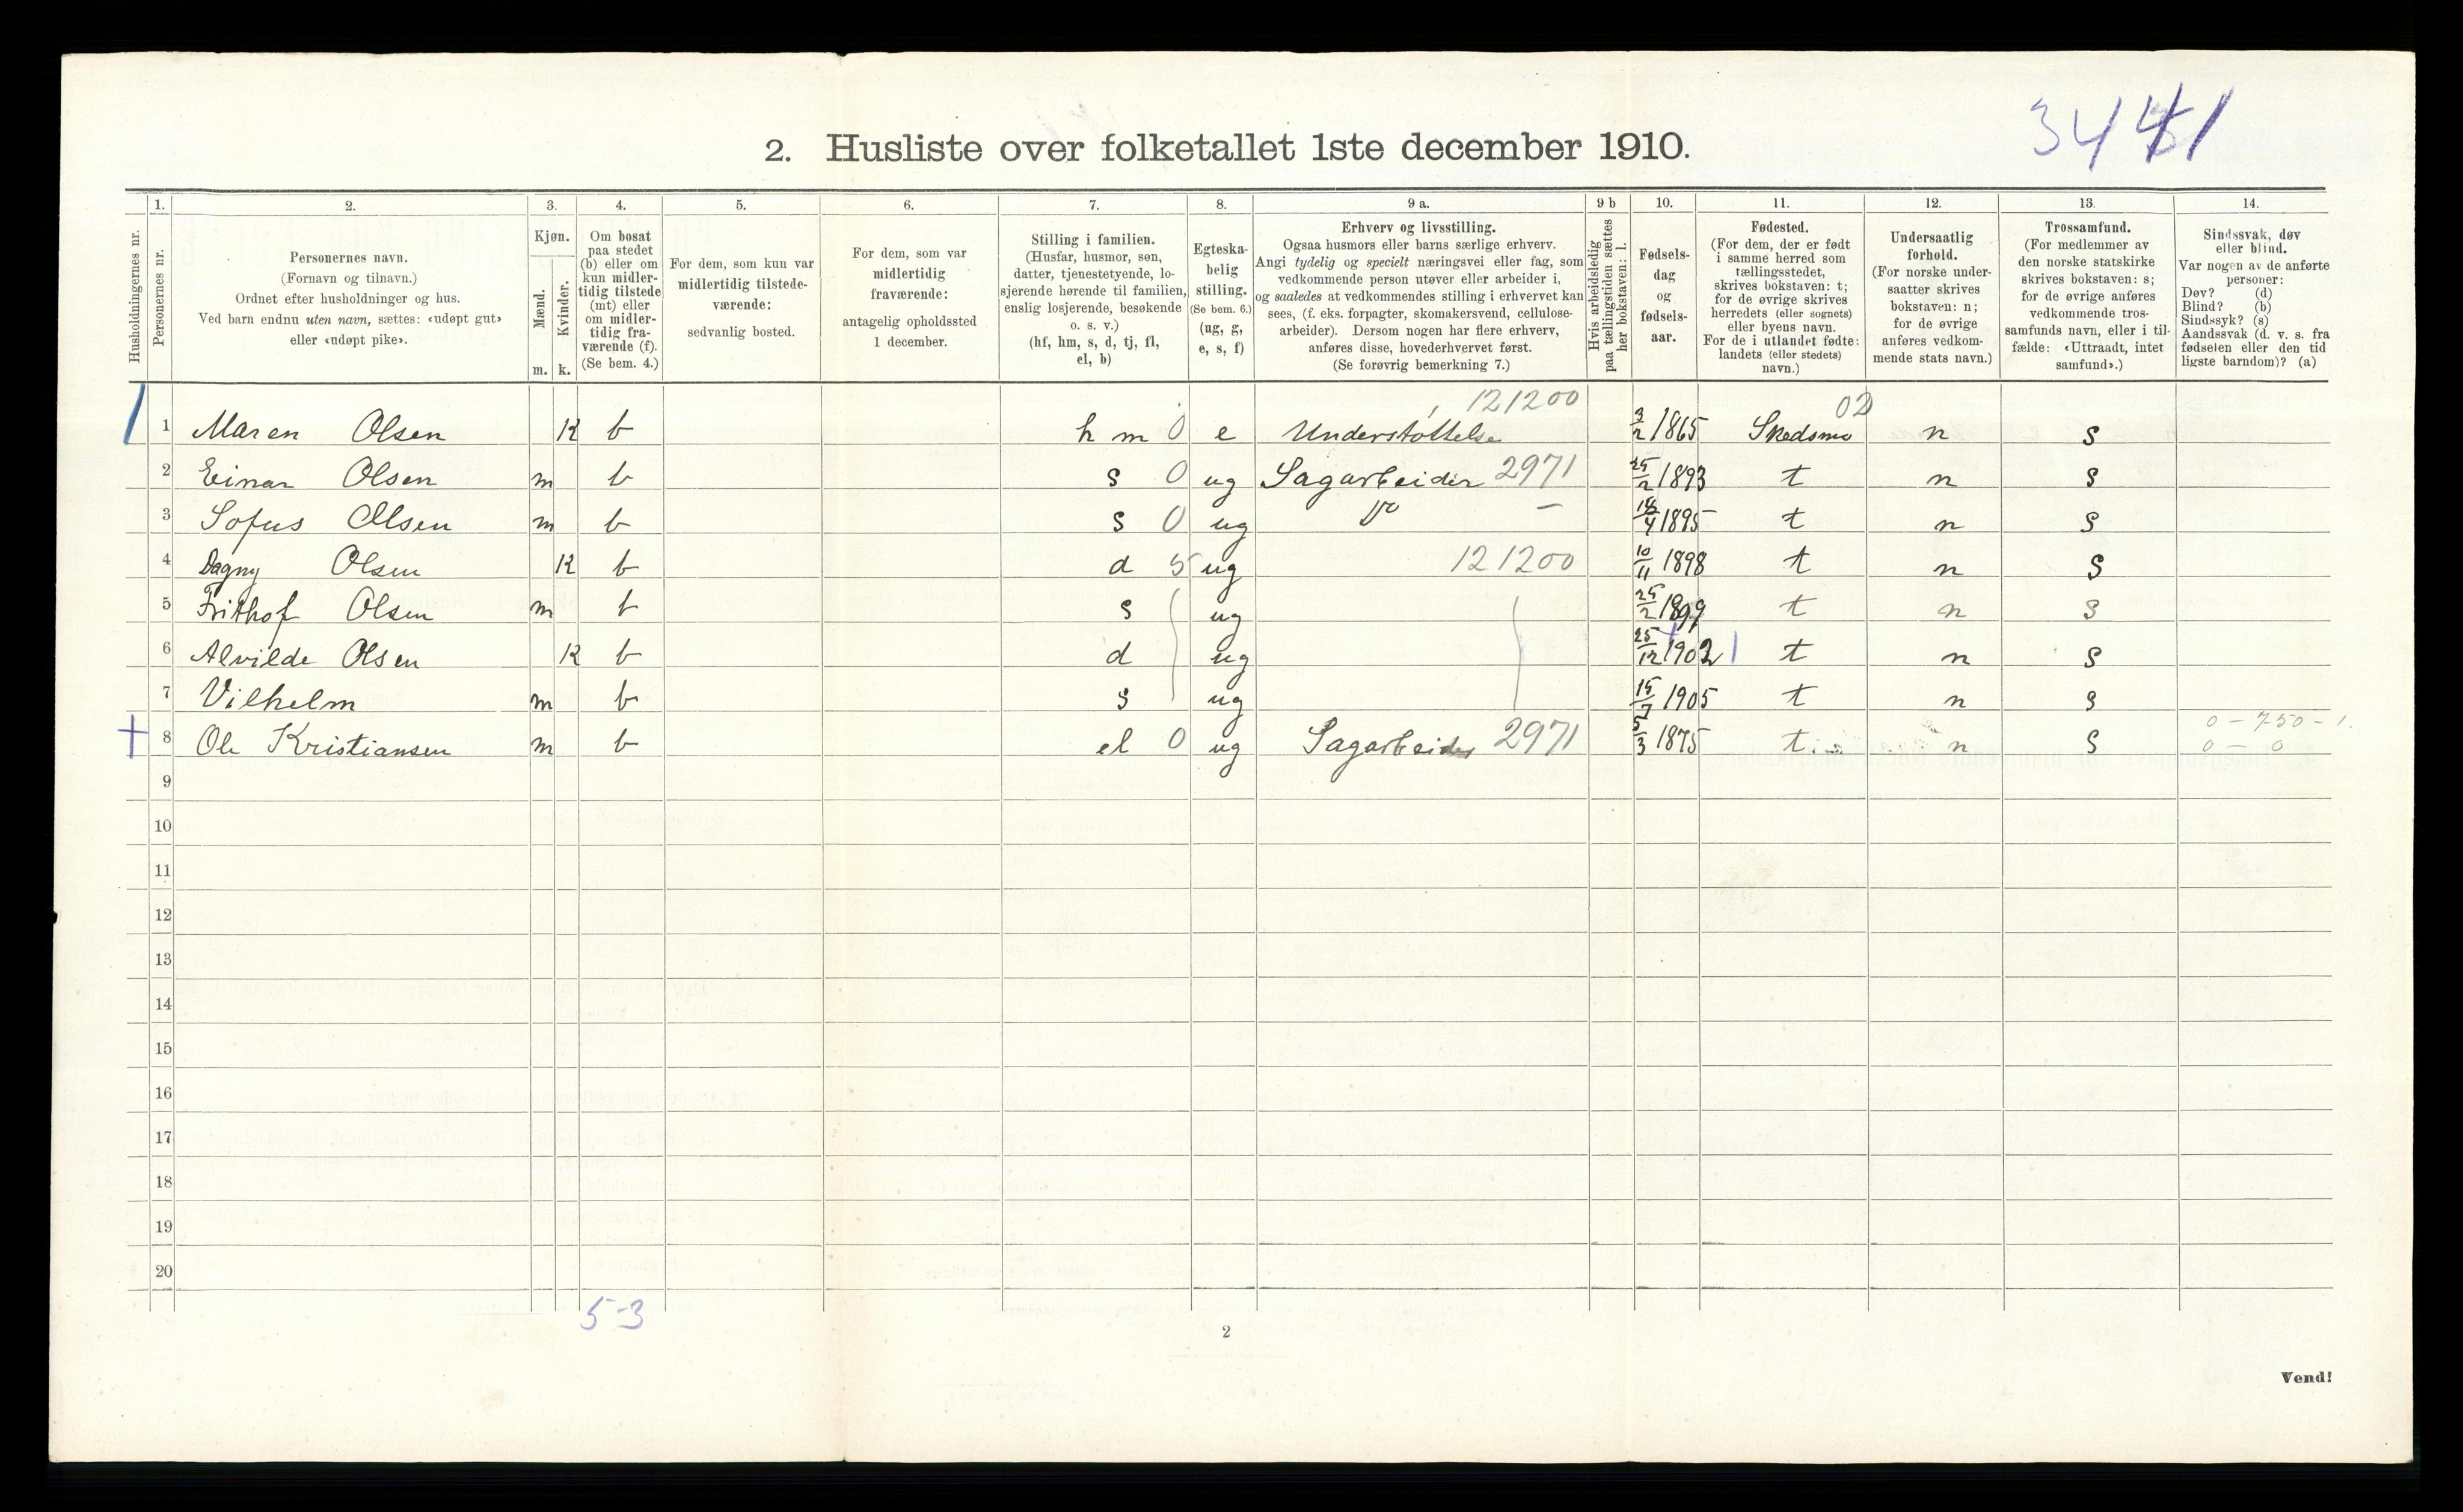 3441
2. Husliste over folketallet 1ste december 1910.
Husholdningernes nr.
1. Personernes nr.
2. Personernes navn.
(Fornavn og tilnavn.)
Ordnet efter husholdninger og hus.
Ved barn endnu uten navn, sættes: «udøpt gut»
eller «udøpt pike».
3. Kjøn.
Mænd. Kvinder.
m. k.
4. Om bosat
paa stedet
(b) eller om
kun midler-
tidig tilstede
(mt) eller
om midler-
tidig fra-
værende (f).
(Se bem. 4.)
5. For dem, som kun var
midlertidig tilstede-
værende:
sedvanlig bosted.
6. For dem, som var
midlertidig
fraværende:
antagelig opholdssted
1 december.
7. Stilling i familien.
(Husfar, husmor, søn,
datter, tjenestetyende, lo-
sjerende hørende til familien,
enslig losjerende, besøkende
o. s. v.)
(hf, hm, s, d, tj, fl,
el, b)
8. Egteska-
belig
stilling.
(Se bem. 6.)
(ug, g,
e, s, f)
9 a. Erhverv og livsstilling.
Ogsaa husmors eller barns særlige erhverv.
Angi tydelig og specielt næringsvei eller fag, som
vedkommende person utøver eller arbeider i,
og saaledes at vedkommendes stilling i erhvervet kan
sees, (f. eks. forpagter, skomakersvend, cellulose-
arbeider). Dersom nogen har flere erhverv,
anføres disse, hovederhvervet først.
(Se forøvrig bemerkning 7.)
9 b Hvis arbeidsledig
paa tællingstiden sættes
her bokstaven: l.
10. Fødsels-
dag
og
fødsels-
aar.
11. Fødested.
(For dem, der er født
i samme herred som
tællingsstedet,
skrives bokstaven: t;
for de øvrige skrives
herredets (eller sognets)
eller byens navn.
For de i utlandet fødte:
landets (eller stedets)
navn.)
12. Undersaatlig
forhold.
(For norske under-
saatter skrives
bokstaven: n;
for de øvrige
anføres vedkom-
mende stats navn.)
13. Trossamfund.
(For medlemmer av
den norske statskirke
skrives bokstaven: s;
for de øvrige anføres
vedkommende tros-
samfunds navn, eller i til-
fælde: «Uttraadt, intet
samfund».)
14. Sindssvak, døv
eller blind.
Var nogen av de anførte
personer:
Døv? (d)
Blind? (b)
Sindssyk? (s)
Aandssvak (d. v. s. fra
fødselen eller den tid
ligste barndom)? (a)
121200 02
1 Maren Olsen K b h m 0 e Understøttelse 3/2 1865 Skedsmo n s
2 Einar Olsen m b s 0 ug Sagarbeider 2971 25/2 1893 t n s
3 Sofus Olsen m b s 0 ug do — 18/4 1895 t n s
4 Dagny Olsen K b d 5 ug 121200 10/11 1898 t n s
5 Frithof Olsen m b s ug 25/2 1899 t n s
6 Alvilde Olsen K b d ug 25/12 1902 t n s
7 Vilhelm m b s ug 15/7 1905 t n s
0 – 750 – 1.
8 Ole Kristiansen m b el 0 ug Sagarbeider 2971 5/3 1875 t. n s 0 – 0
9
10
11
12
13
14
15
16
17
18
19
20
5-3
2
Vend!